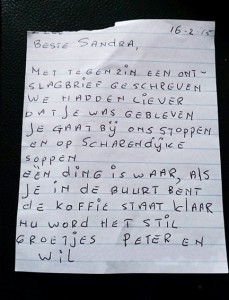 16-2-15
BESTE SANDRA,
MET TEGENZIN EEN ONT-
SLAGBRIEF GESCHREVEN
WE HADDEN LIEVER
DAT JE WAS GEBLEVEN
JE GAAT BIJ ONS STOPPEN
EN OP SCHARENDIJKE
SOPPEN
EÉN DING IS WAAR, ALS
JE IN DE BUURT BENT
DE KOFFIE STAAT KLAAR
NU WORD HET STIL
GROETJES PETER EN
WIL